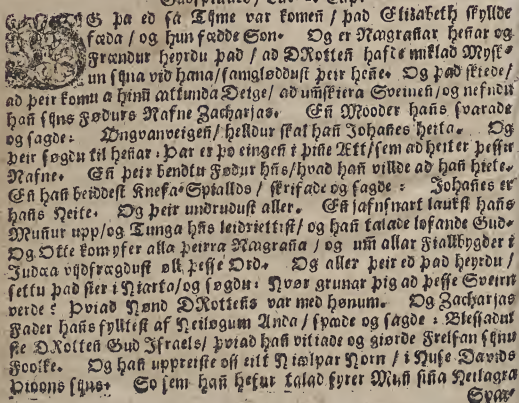 OG þa ed sa Tijme var komeñ / þad Elisabeth skyllde
fæda / og hun fædde Son. Og er Nagrañar heñar og
Frændur heyrdu þad / ad DRotteñ hafde miklad Mysk-
un sijna vid hana / samgløddust þeir heñe. Og þad skiede /
ad þeir komu a hinū aattunda Deige / ad umskiera Sveineñ / og nefndu
hañ sijns Fødurs Nafne Zacharjas. Eñ Mooder hañs svarade
og sagde: Øngvanveigeñ / helldur skal hañ Johañes heita. Og
þeir søgdu til heñar: Þar er þo eingeñ i þiñe Ætt / sem ad heiter þessu
Nafne. Eñ þeir bendtu Fødur hñs / hvad hañ villde ad hañ hiete.
Eñ hañ beiddest Knefa-Spiallds / skrifade og sagde: Johañes er
hañs Heite. Og þeir undrudust aller. Eñ jafnsnart laukst hañs
Muñur upp / og Tunga hñs leidriettist / og hañ talade lofande Gud.
Og Otte kom yfer alla þeirra Nagraña / og um allar Fiallbygder i
Judæa vijdfrægdust øll þesse Ord. Og aller þeir ed þad heyrdu /
settu þad sier i Hiarta / og søgdu: Hvør grunar þig ad þesse Sveirn
verde? Þviad Hønd DRotteñs var med hønum. Og Zacharjas
Fader hañs fylltest af Heiløgum Anda / spaade og sagde: Blessadur
sie DRotteñ Gud Israels / þviad hañ vitiade og giørde Frelsan sijnu
Foolke. Og hañ uppreiste oss eitt Hialpar Horn / i Huse Davids
Þioons sijns. So sem hañ hefur talad fyrer Muñ siña Heilagra
Spaa-